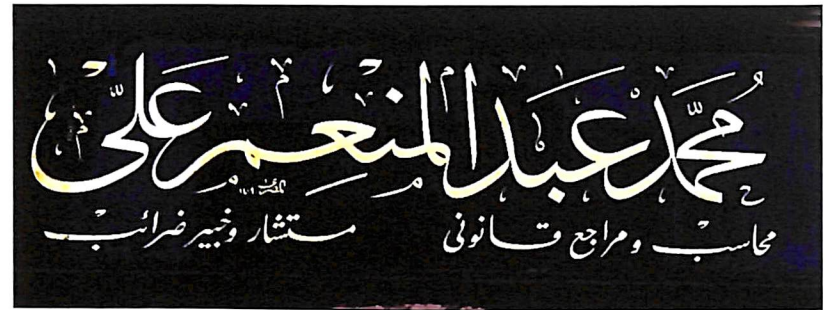 محمد عبد المنعم علي
محاسب ومراجع قانونى مستشار وخبير ضرائب